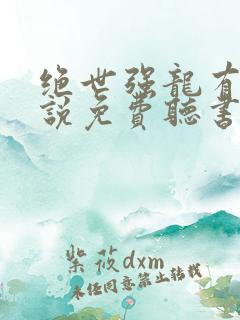 绝世强龍有
說免費聽書
紫莜dxm
未经同意禁止转载